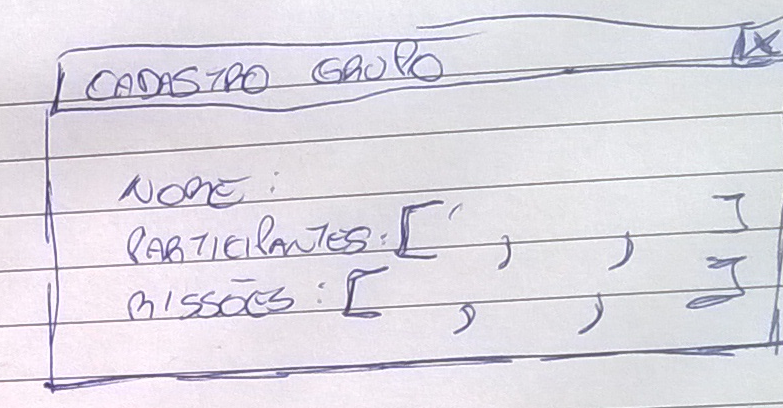 CADASTRO GRUPO X
NOME:
PARTICIPANTES: [ , , ]
MISSÕES: [ , , ]